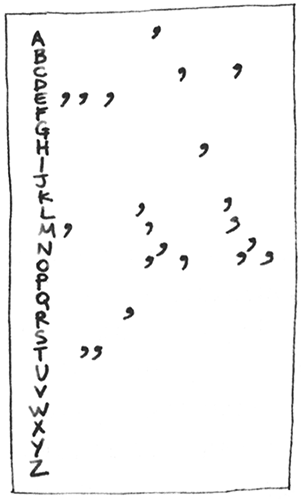 A ,
B
C , ,
D
E , , ,
F
G
H ,
I
J
K ,
L ,
M , , ,
N , ,
O , , , ,
P
Q
R ,
S
T , ,
U
V
W
X
Y
Z